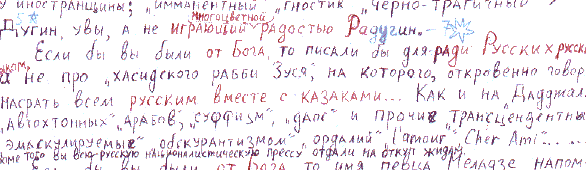 у иностранщины; "имманентный" "гностик" "черно-трагичный"
многоцветной
Дугин, увы, а не играющий радостью Радугин. –
Если бы вы были от Бога, то писали бы для-ради Русских русски
а не про "хасидского рабби Зуся", на которого, откровенно говор
насрать всем русским вместе с КАЗАКАМИ... Как и на "Дадджал
"Автохтонных" "Арабов", "суффизм", и прочие трансцендентны
"эмаскулируемые" обскурантизмом" "ордалий" "l'amour" "Cher Ami"... ...
Кроме того вы всю русскую националистическую прессу отдали на откуп жидам.
Если бы вы были от Бога, то имя певца Меладзе напом